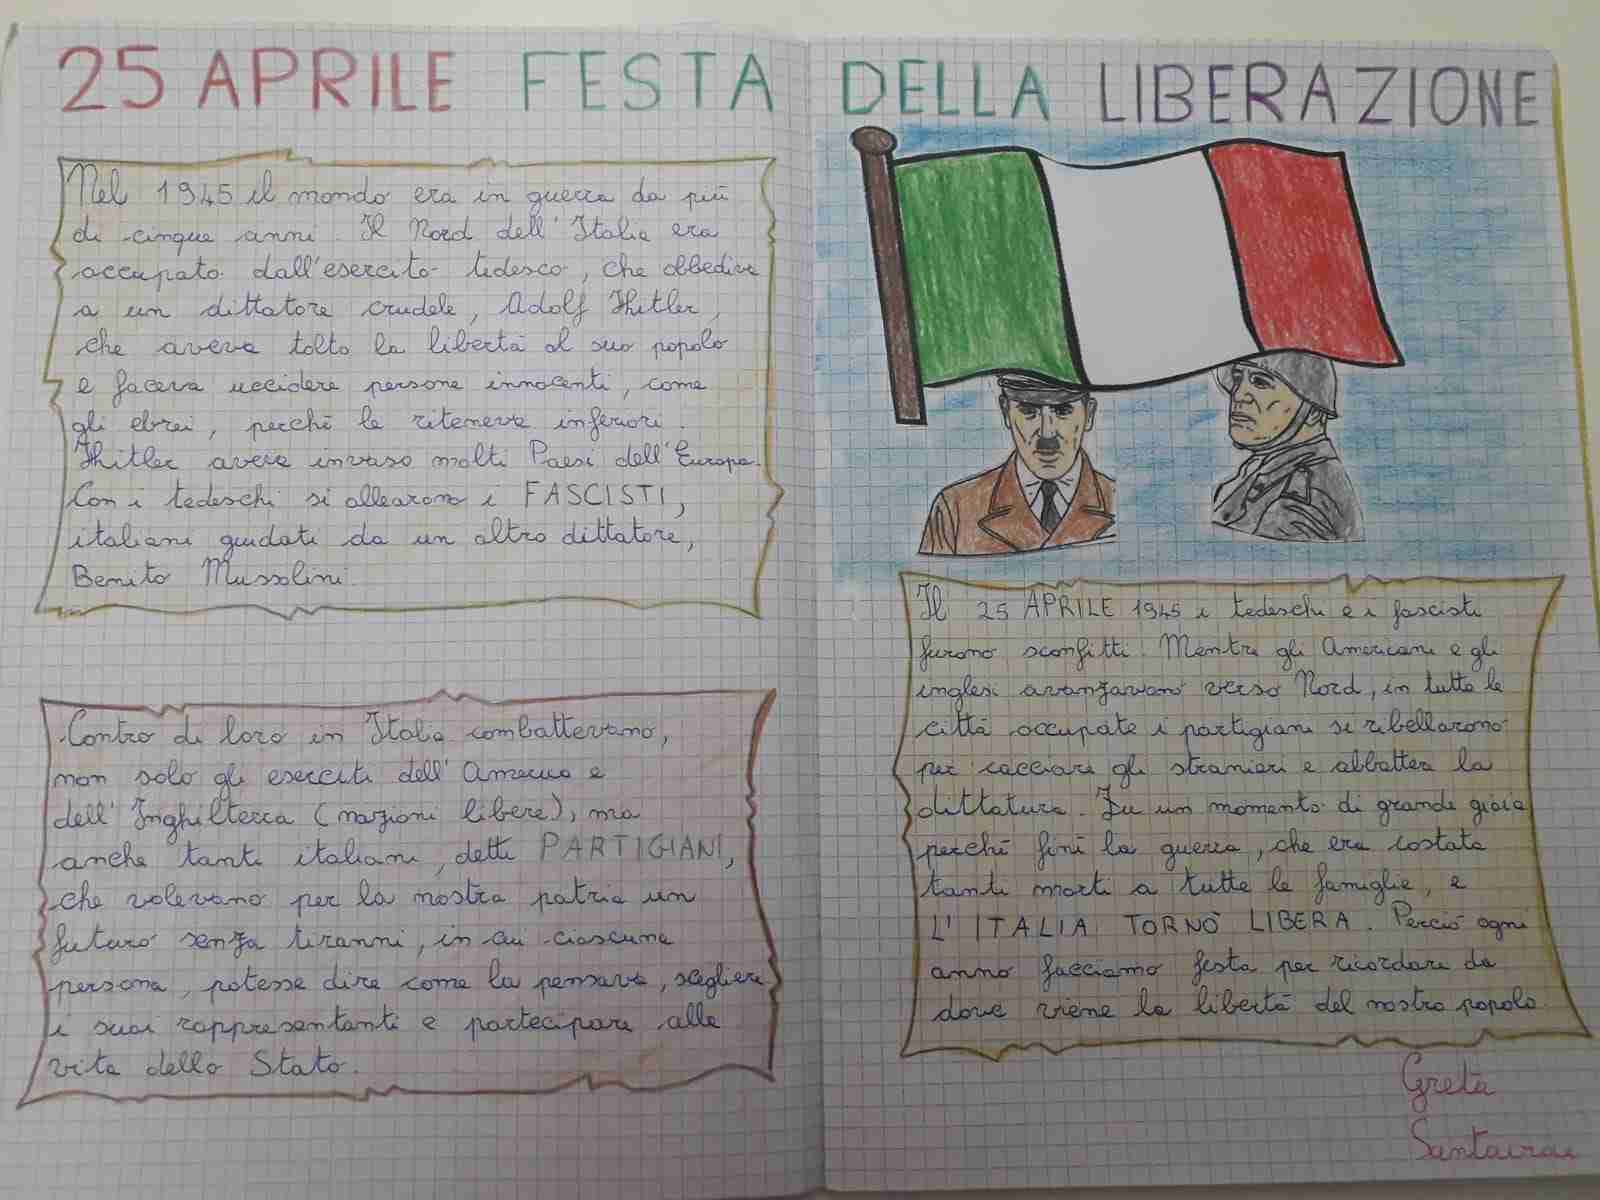 25 APRILE FESTA DELLA LIBERAZIONE
Nel 1945 il mondo era in guerra da più
di cinque anni. Il Nord dell'Italia era
occupato dall'esercito tedesco, che obbediva
a un dittatore crudele, Adolf Hitler,
che aveva tolto la libertà al suo popolo
e faceva uccidere persone innocenti, come
gli ebrei, perché le riteneva inferiori.
Hitler aveva invaso molti Paesi dell'Europa.
Con i tedeschi si allearono i FASCISTI,
italiani guidati da un altro dittatore,
Benito Mussolini.
Contro di loro in Italia combattevano,
non solo gli eserciti dell'America e
dell'Inghilterra (nazioni libere), ma
anche tanti italiani, detti PARTIGIANI,
che volevano per la nostra patria un
futuro senza tiranni, in cui ciascuna
persona, potesse dire come la pensava, scegliere
i suoi rappresentanti e partecipare alla
vita dello Stato.
Il 25 APRILE 1945 i tedeschi e i fascisti
furono sconfitti. Mentre gli Americani e gli
inglesi avanzavano verso Nord, in tutte le
città occupate i partigiani si ribellarono
per cacciare gli stranieri e abbatter la
dittatura. Fu un momento di grande gioia
perché finì la guerra, che era costata
tanti morti a tutte le famiglie, e
L'ITALIA TORNÒ LIBERA. Perciò ogni
anno facciamo festa per ricordare da
dove viene la libertà del nostro popolo.
Greta